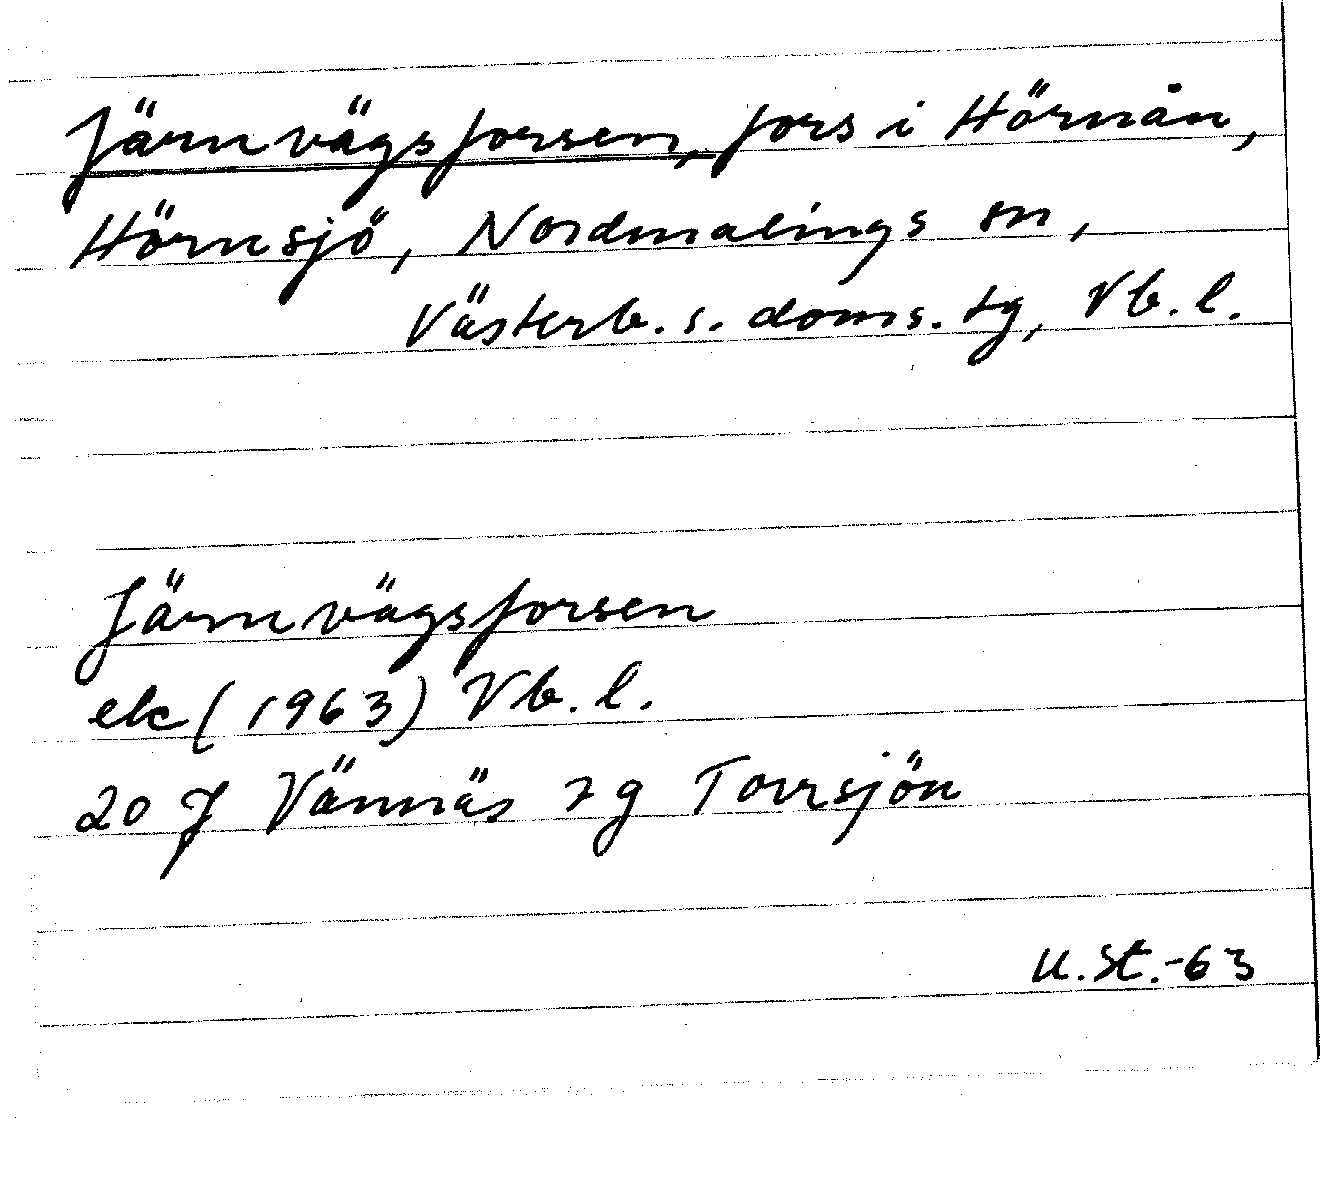 Järnvägsforsen, fors i Hörnån,
Hörnsjö, Nordmalings sn,
Västerb. s. doms. tg, Vb. l.
Järnvägsforsen
ek (1963) Vb. l.
20 J Vännäs 7 g Torrsjön
U. St. -63